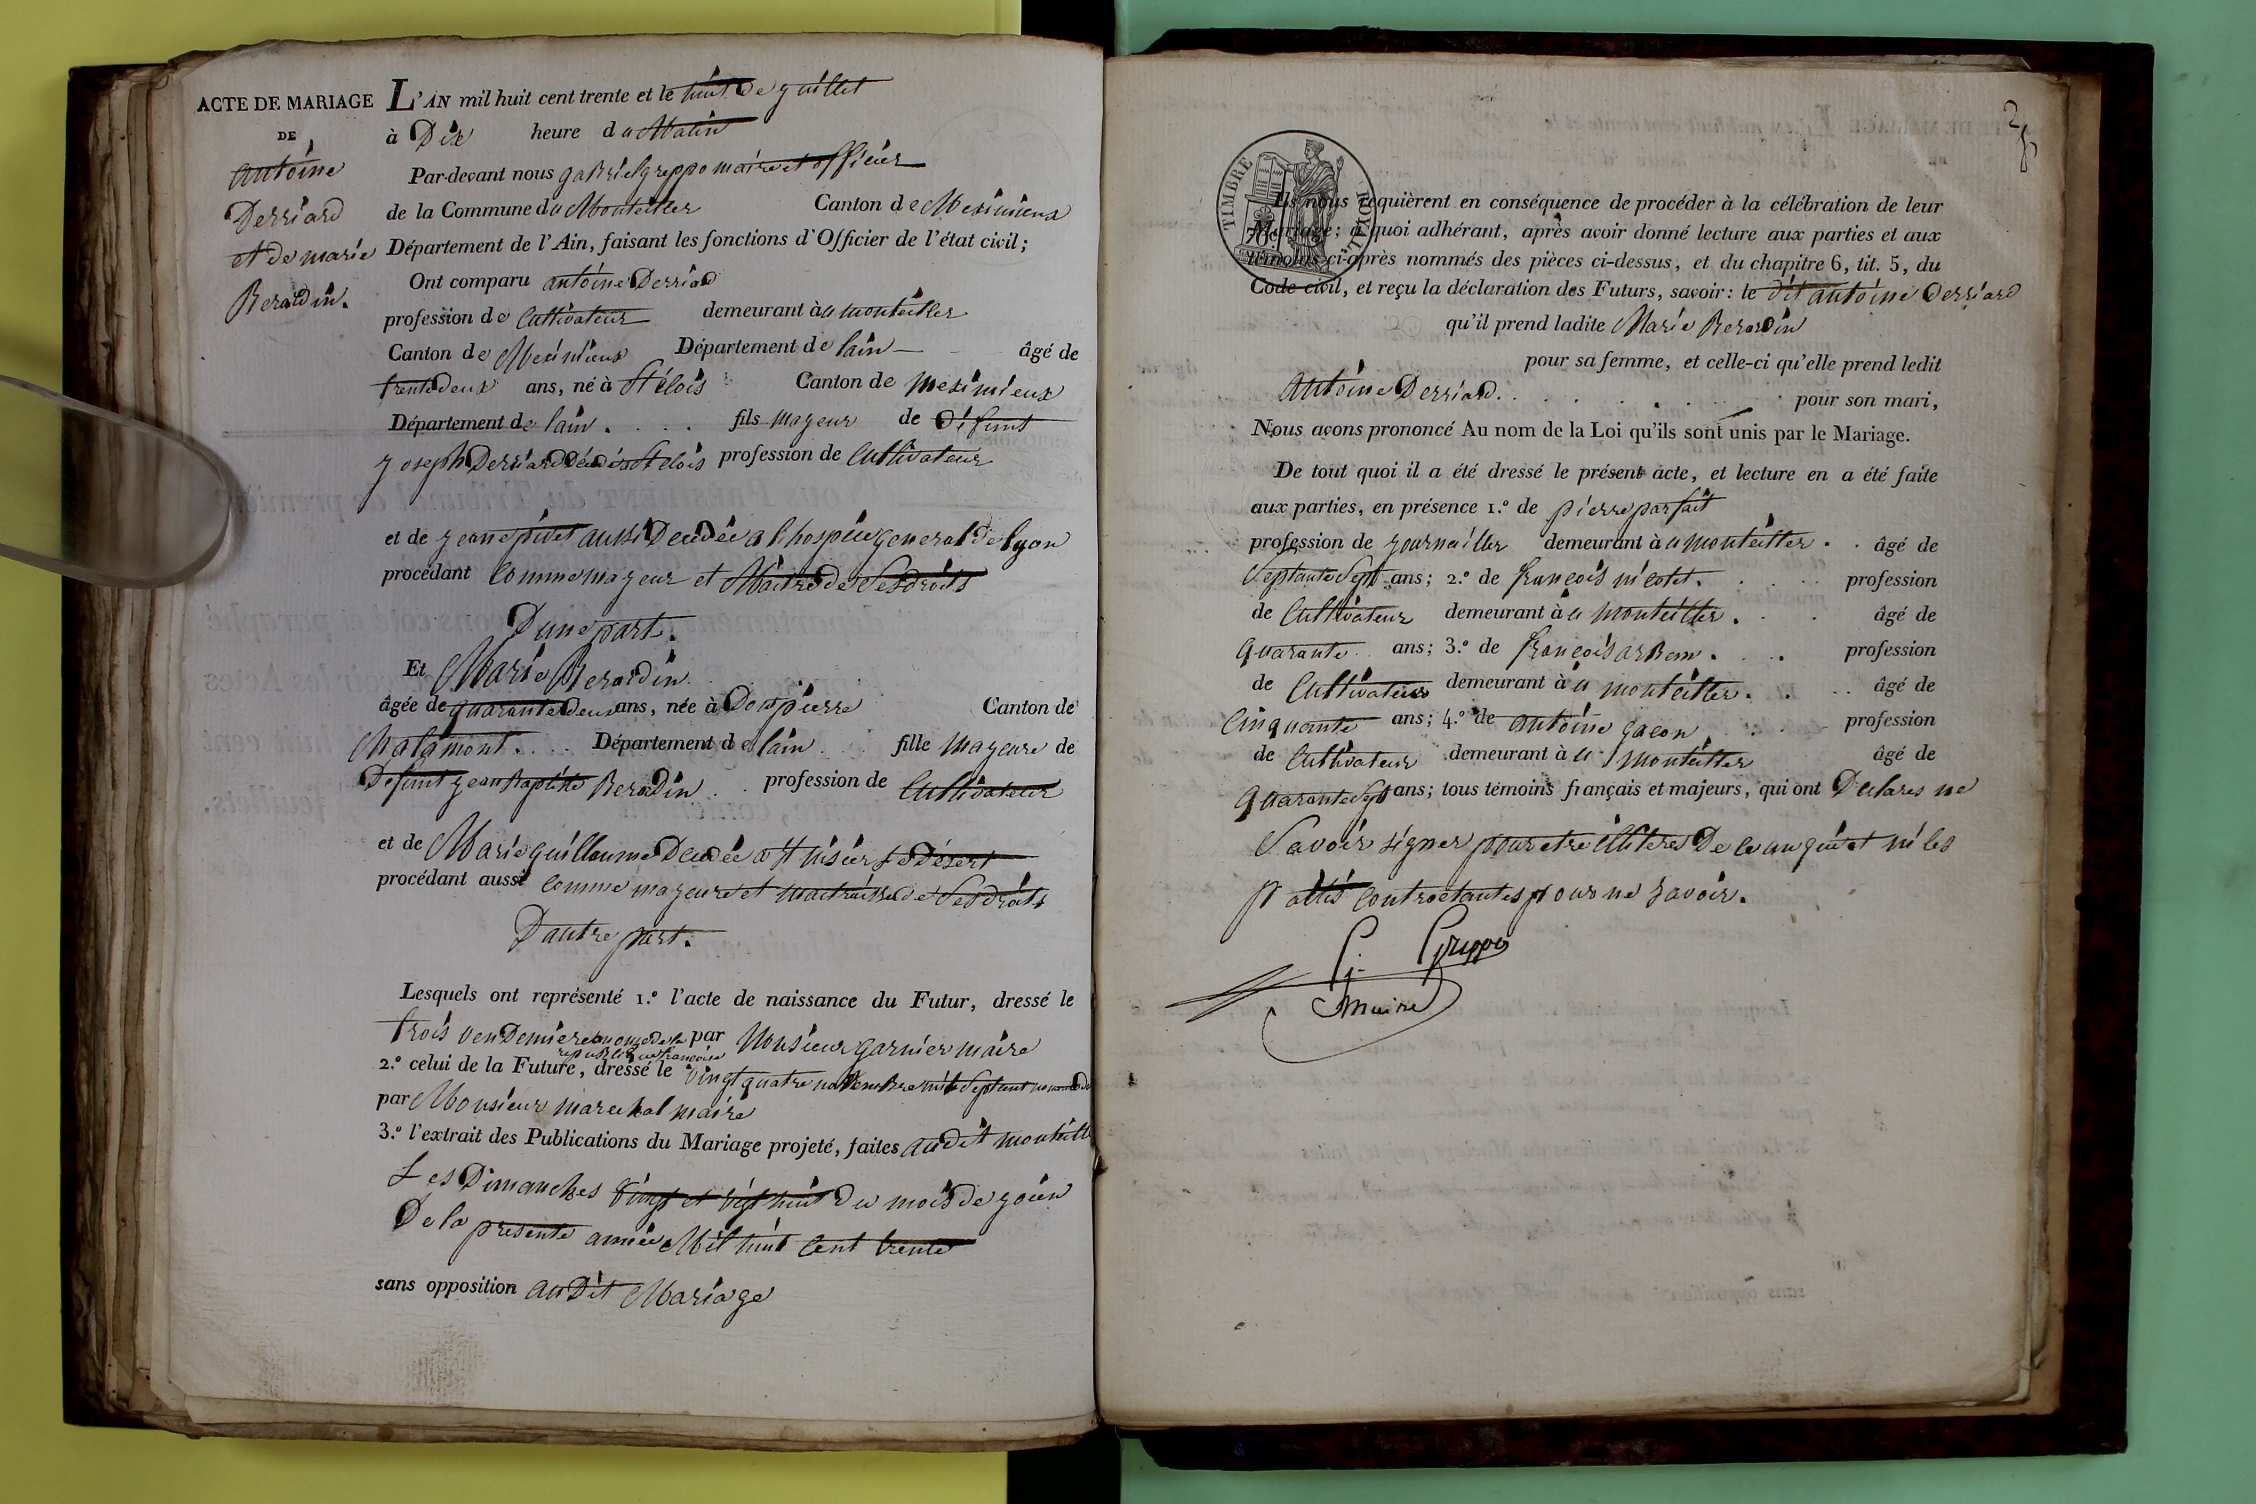 ACTE DE MARIAGE
DE
antoine
Derriard
et de marie
Berardin.
L'AN mil huit cent trente et le huit de juillet
à Dix heure du Matin
Par-devant nous gabriel greppo maire et officier
de la Commune du Montellier Canton de Meximieux
Département de l'Ain, faisant les fonctions d'Officier de l'état civil;
Ont comparu antoine Derriad
profession de Cultivateur demeurant àu montellier
Canton de Meximieux Département de lain âgé de
trente deux ans, né à St élois Canton de meximieux
Département de lain. fils majeur de Défunt
joseph Derriard Décédé a St elois profession de Cultivateur
et de jeane pivet aussi Decedée a lhospice general de lyon
procédant comme majeur et Maitre de Ses droits
Dune part.
Et Marie Berardin
âgée de quarante deux ans, née à Dompierre Canton de
Chalamont. Département de lain fille majeure de
Defunt jean Baptiste Berardin. profession de Cultivateur
et de Marie guillaume Decedée a St nisier le Désert
procédant aussi comme majeure et maitraisse de Ses droits
Dautre part.
Lesquels ont représenté 1.º l'acte de naissance du Futur, dressé le
trois vendemiere an onze de la par Monsieur garnier maire
republique francaise
2.º celui de la Future, dressé le vingt quatre novembre mil Sept cent
par Monsieur marechal maire
3.º l'extrait des Publications du Mariage projeté, faites audit montelli
Les Dimanches Vingt et vigt huit du mois de jouin
De la presente année Mil huit cent trente
sans opposition au Dit Mariage
2
TIMBRE ROYAL
Ils nous requièrent en conséquence de procéder à la célébration de leur
Mariage; à quoi adhérant, après avoir donné lecture aux parties et aux
témoins ci-après nommés des pièces ci-dessus, et du chapitre 6, tit. 5, du
Code civil, et reçu la déclaration des Futurs, savoir: le dit antoine Derriard
qu'il prend ladite Marie Berardin
pour sa femme, et celle-ci qu'elle prend ledit
Antoine Derriard. pour son mari,
Nous avons prononcé Au nom de la Loi qu'ils sont unis par le Mariage.
De tout quoi il a été dressé le présent acte, et lecture en a été faite
aux parties, en présence 1.º de pierre parfait
profession de journailler demeurant àu montellier. âgé de
Septante Sept ans; 2.º de françois nicolet. profession
de Cultivateur demeurant àu montellier. âgé de
quarante ans; 3.º de françois arbem. profession
de Cultivateur demeurant àu montellier. âgé de
Cinquante ans; 4.º de antoine gacon profession
de Cultivateur demeurant àu montellier âgé de
quarante Sept ans; tous témoins français et majeurs, qui ont Declares ne
Savoir signer pour etre illiteres De ce enquiet ni les
parties contractantes pour ne savoir.
G. Greppo
maire